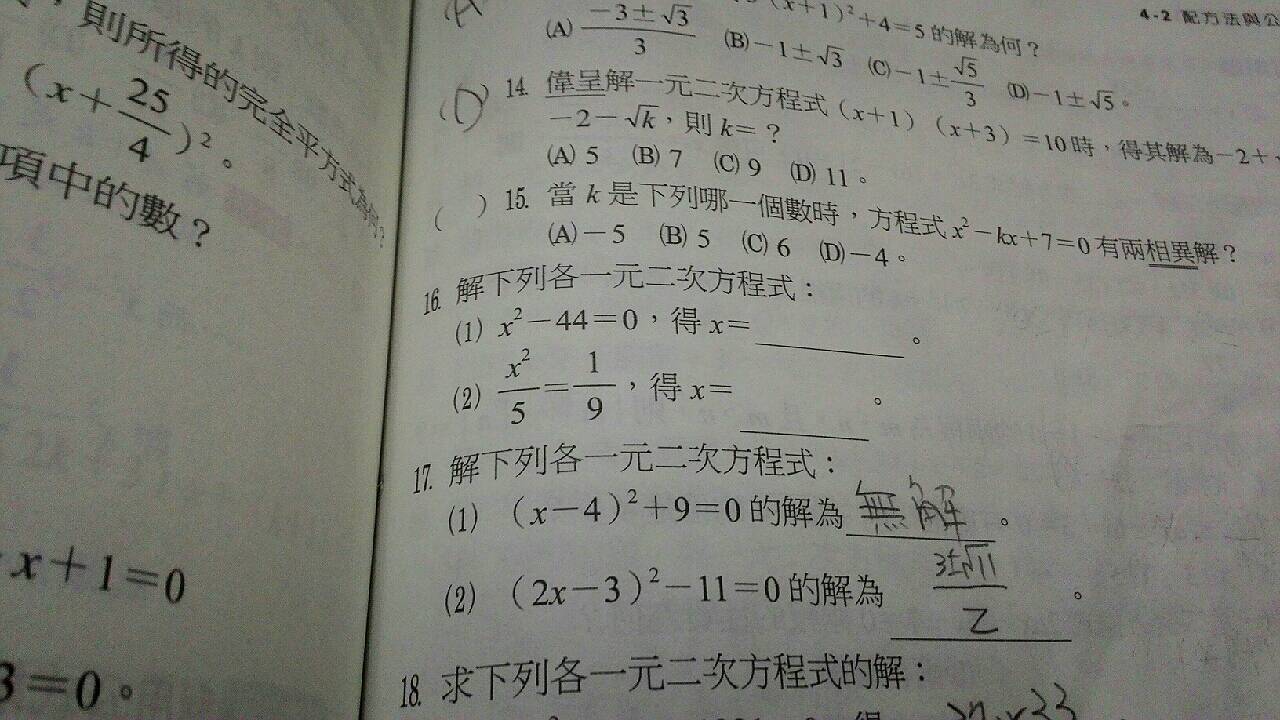 ，則所得的完全平方式為何？
(x+25/4)²。
項中的數？
x+1=0
3=0。
4-2 配方法與公
(x+1)²+4=5的解為何？
(A) (-3±√3)/3 (B)-1±√3 (C)-1±√5/3 (D)-1±√5。
(D) 14. 偉呈解一元二次方程式(x+1)(x+3)=10時，得其解為-2+
-2-√k，則k=？
(A) 5 (B) 7 (C) 9 (D) 11。
( ) 15. 當k是下列哪一個數時，方程式x²-kx+7=0有兩相異解？
(A)-5 (B) 5 (C) 6 (D)-4。
16. 解下列各一元二次方程式：
(1) x²-44=0，得x=______。
(2) x²/5=1/9，得x=______。
17. 解下列各一元二次方程式：
(1) (x-4)²+9=0的解為無解。
(2) (2x-3)²-11=0的解為(3±√11)/2。
18. 求下列各一元二次方程式的解：